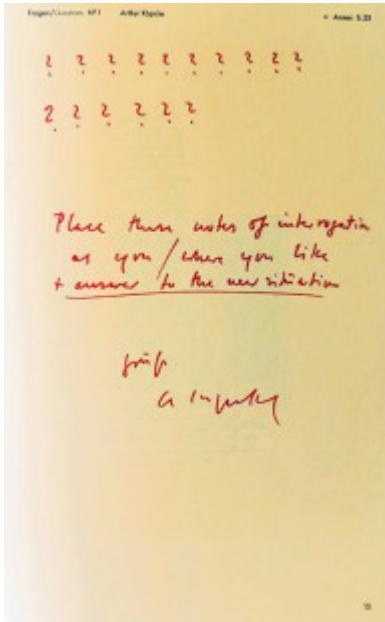 Fragen/Questions. Nº1 Arthur Køpcke
Annex 5.23
? ? ? ? ? ? ? ? ? ?
? ? ? ? ? ?
Place these notes of interrogation
as you / where you like
+ answer to the new situation